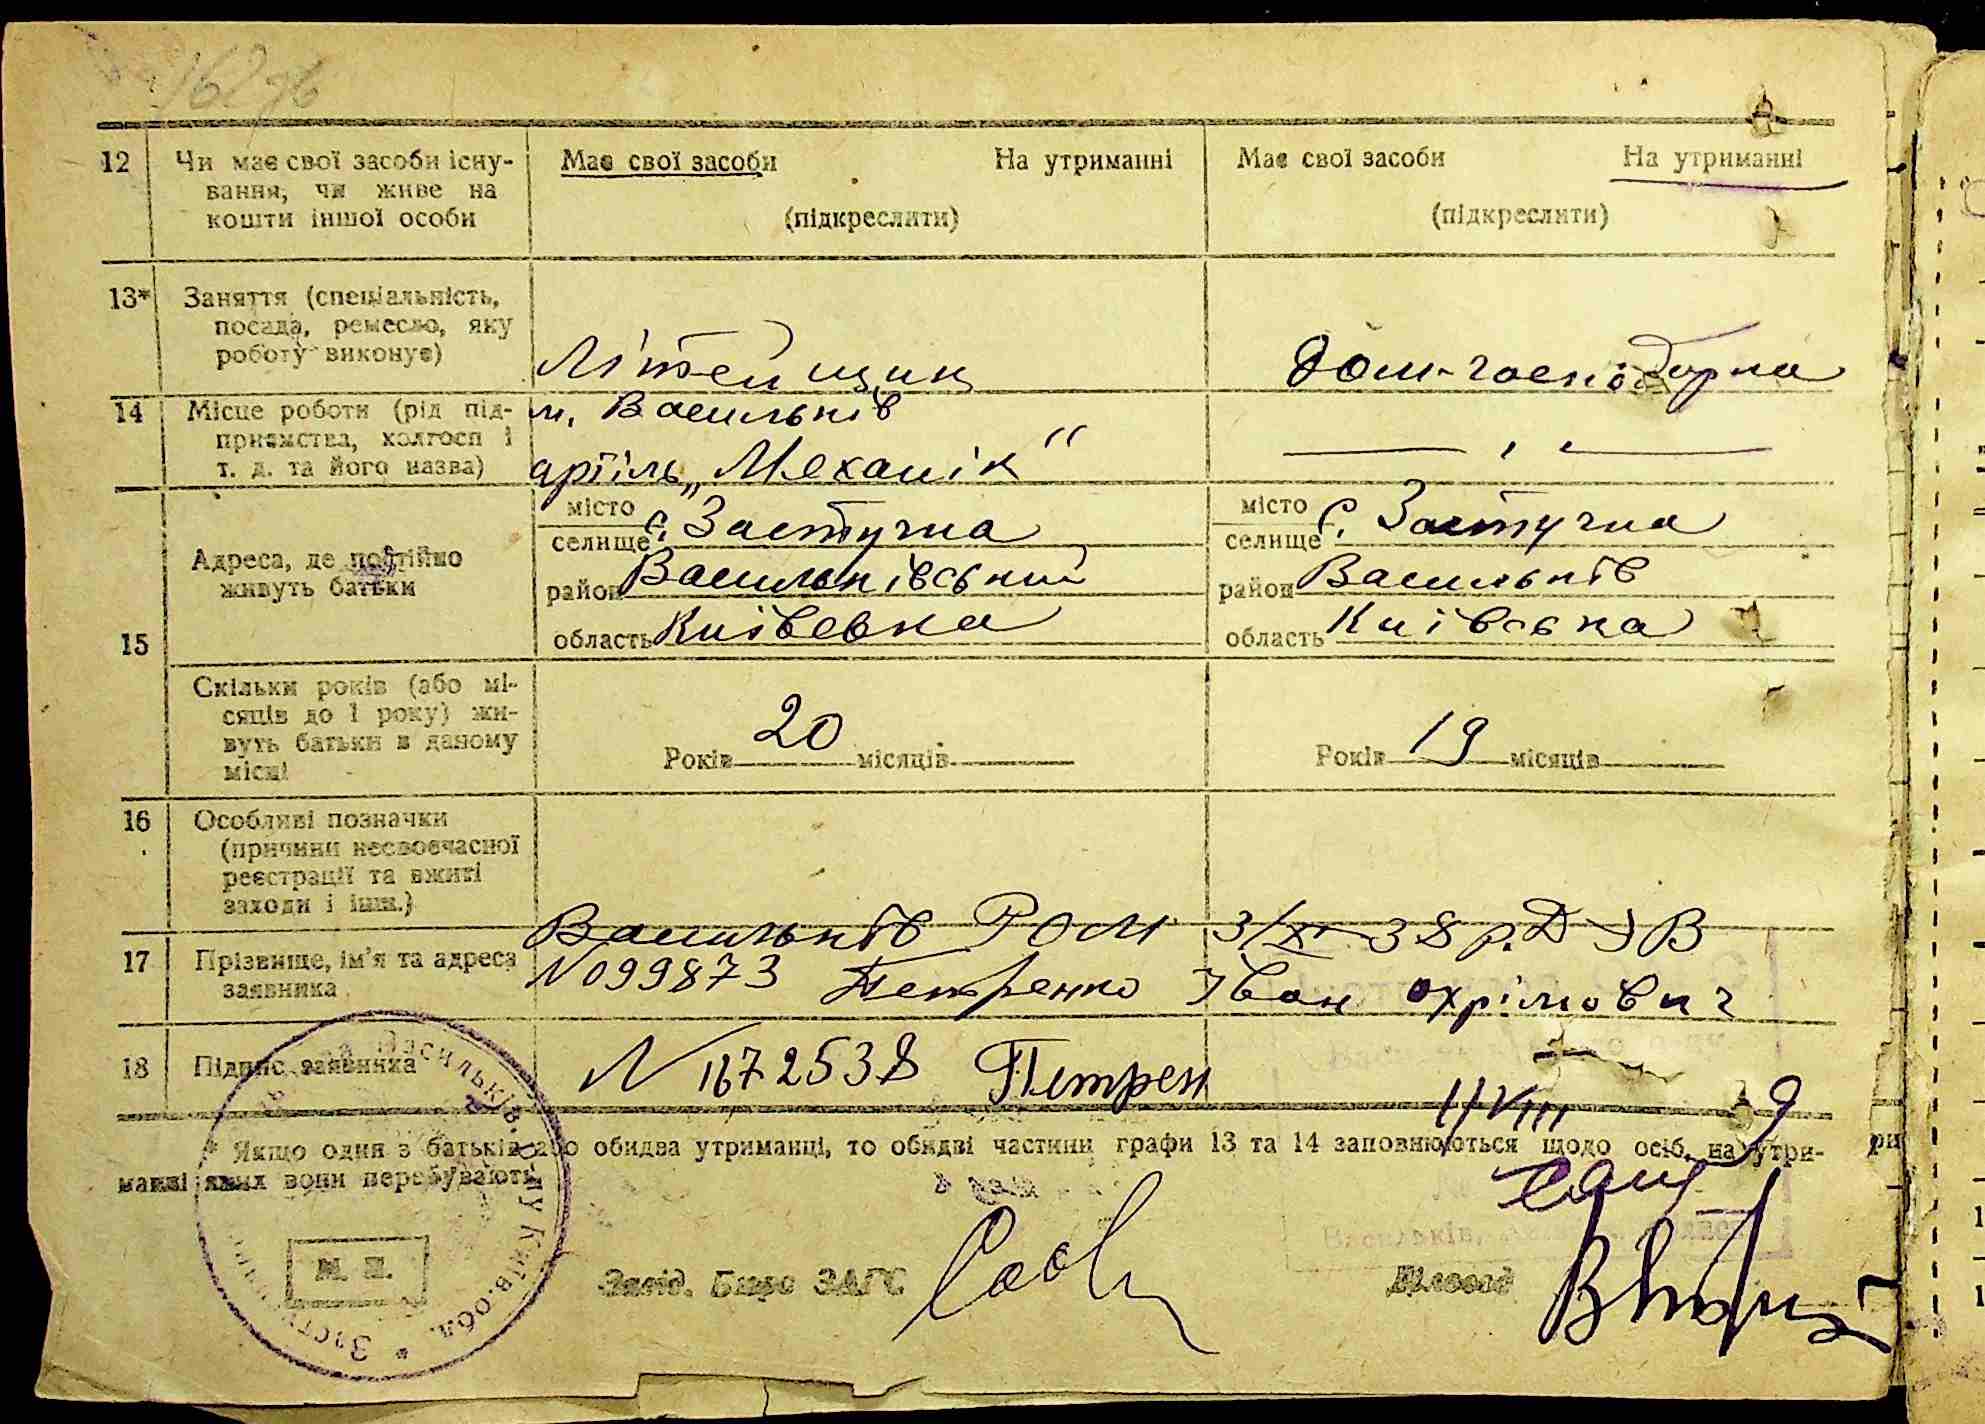 12 Чи має свої засоби існу-
вання, чи живе на
кошти іншої особи
Має свої засоби На утриманні
(підкреслити)
Має свої засоби На утриманні
(підкреслити)
13* Заняття (спеціальність,
посада, ремесло, яку
роботу виконує)
Літейщик
Дом-господарка
14 Місце роботи (рід під-
приємства, колгосп і
т. д. та його назва)
м. Васильків
артіль „Механік"
15 Адреса, де постійно
живуть батьки
місто
селище с. Застугна
район Васильківський
область Київська
місто
селище с. Застугна
район Васильків
область Київська
Скільки років (або мі-
сяців до 1 року) жи-
вуть батьки в даному
місці
Років 20 місяців
Років 19 місяців
16 Особливі позначки
(причини несвоєчасної
реєстрації та вжиті
заходи і інш.)
17 Прізвище, ім'я та адреса
заявника
Васильків РОМ 3/XI 38 р.
N099873 Петренко Іван Охрімович
18 Підпис заявника
N 1672538 Петрен
* Якщо один з батьків або обидва утриманці, то обидві частини графи 13 та 14 заповнюються щодо осіб, на утри-
манні яких вони перебувають
М. П.
Завід. Бюро ЗАГС
Діловод
Васильків. р-ну Київ. обл.